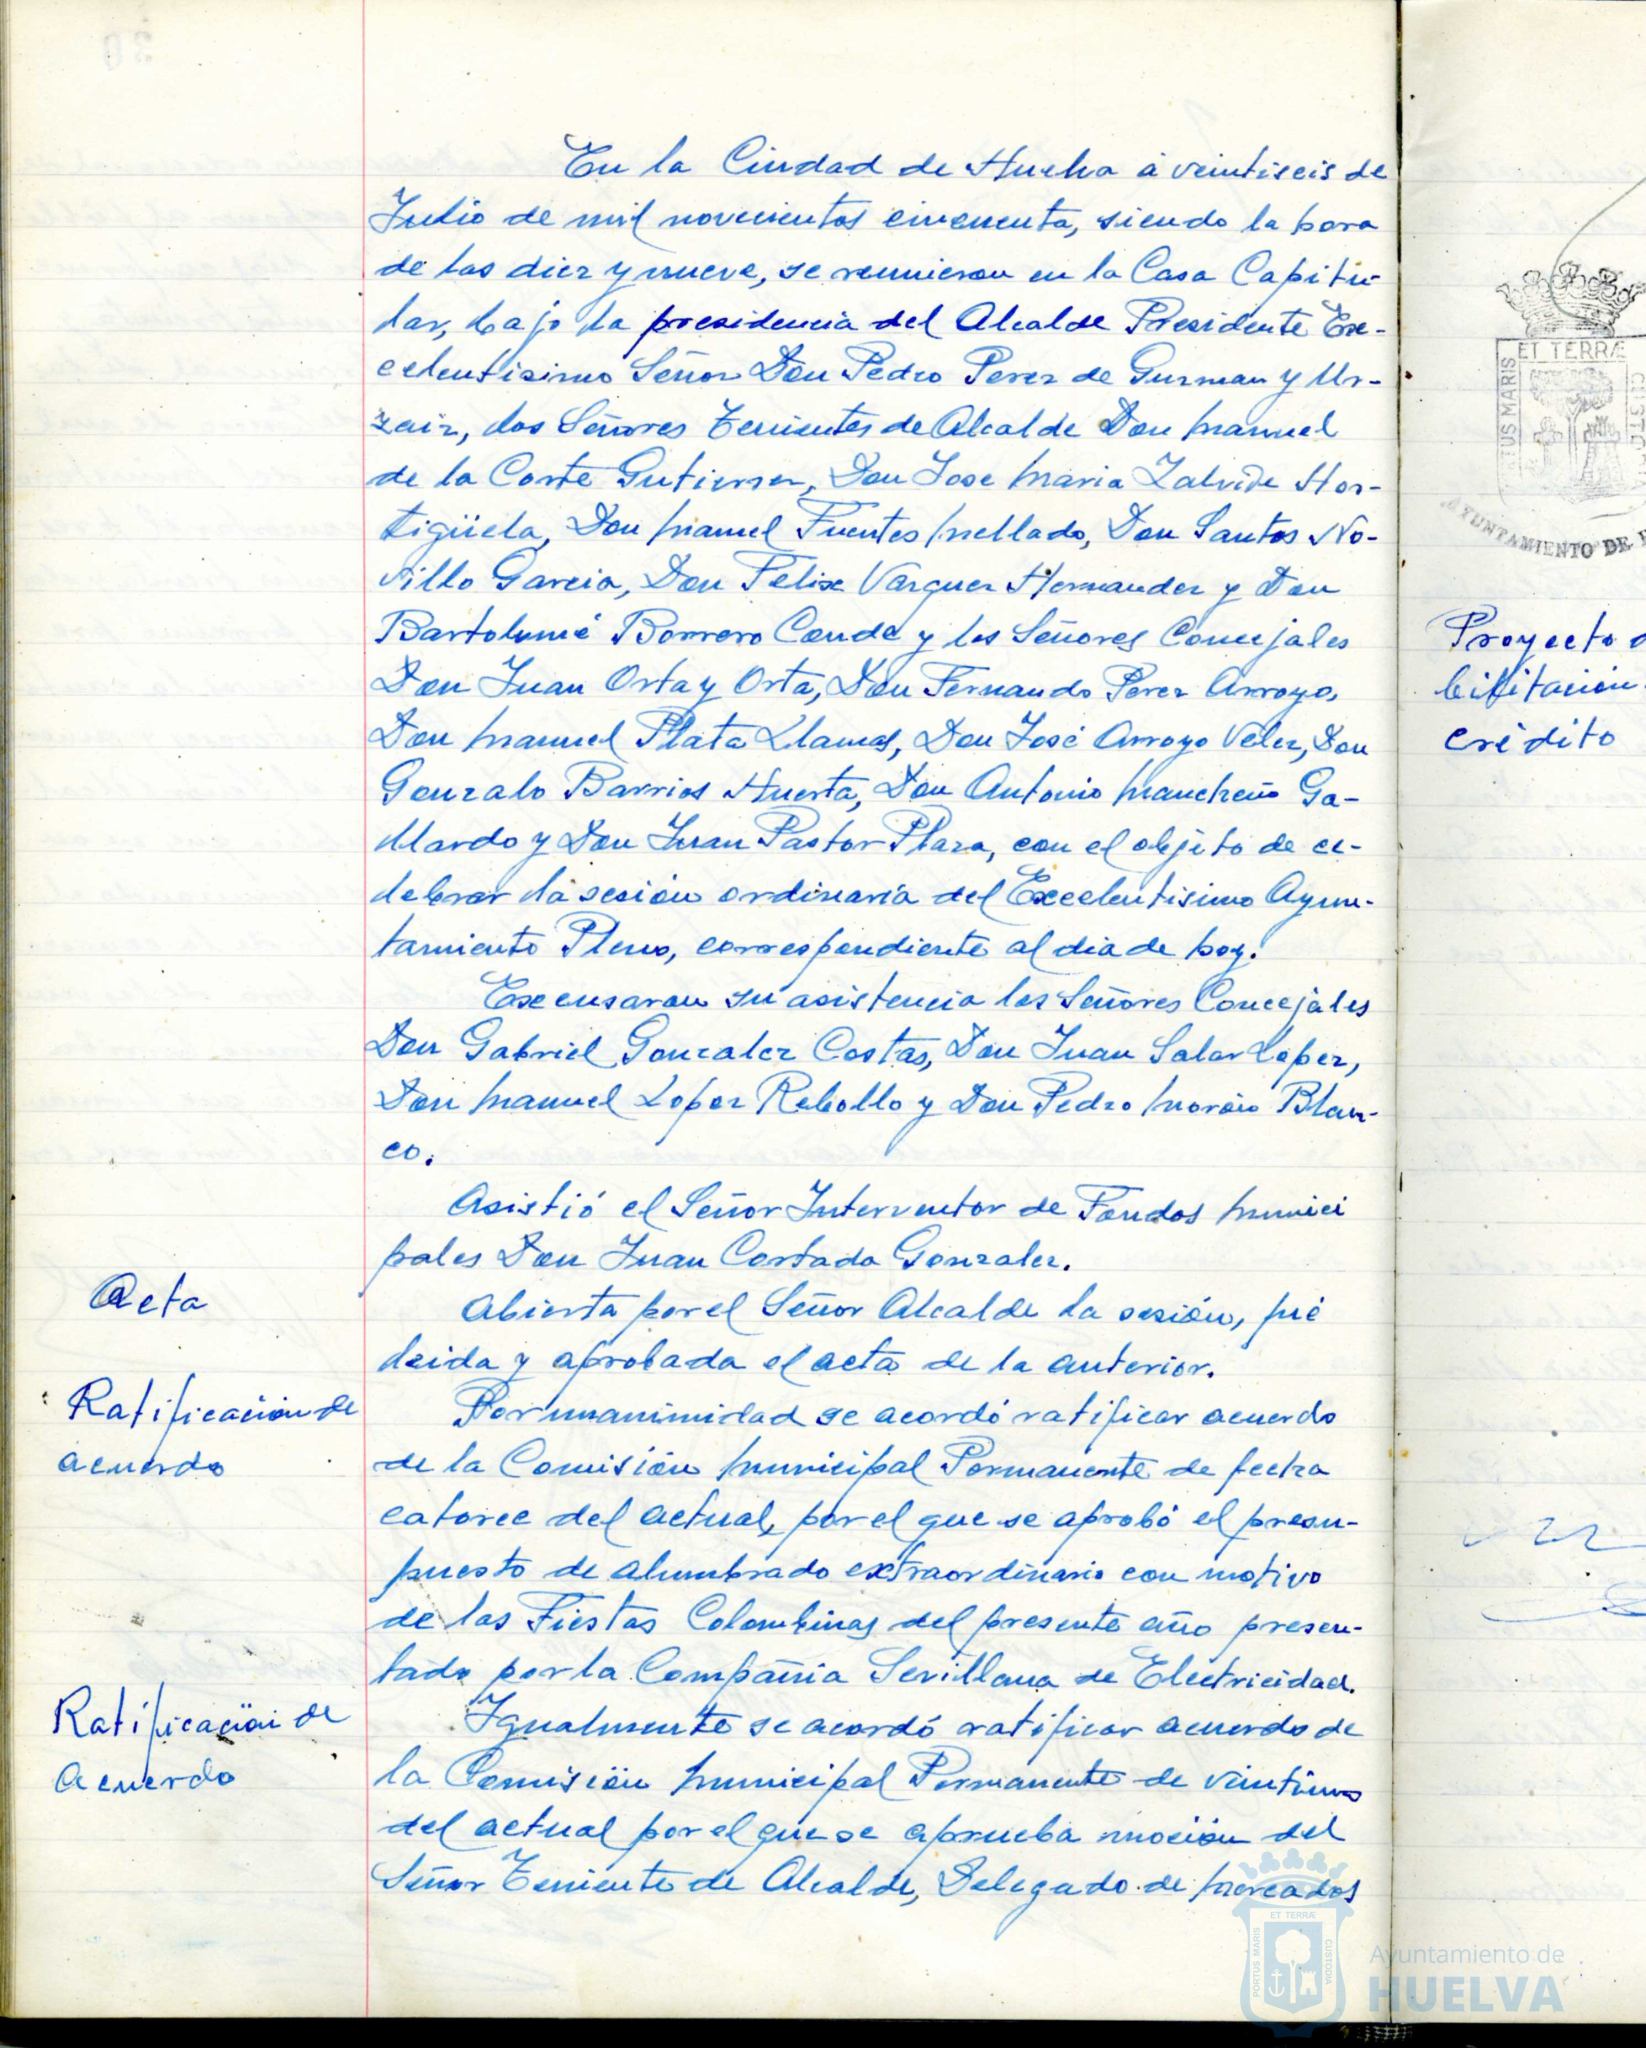 En la Ciudad de Huelva á veintiseis de
Julio de mil novecientos cincuenta, siendo la hora
de las diez y nueve, se reunieron en la Casa Capitu-
lar, bajo la presidencia del Alcalde Presidente Ex-
celentisimo Señor Don Pedro Perez de Guzman y Ur-
zaiz, los Señores Tenientes de Alcalde Don Manuel
de la Corte Gutierrez, Don Jose Maria Zalvide Hor-
tigüela, Don Manuel Fuentes Mellado, Don Santos No-
villo Garcia, Don Felix Vázquez Hernandez y Don
Bartolomé Borrero Conde y los Señores Concejales
Don Juan Orta y Orta, Don Fernando Perez Arroyo,
Don Manuel Plata Llamas, Don José Arroyo Velez, Don
Gonzalo Barrios Huerta, Don Antonio Mancheño Ga-
llardo y Don Juan Pastor Plaza, con el objeto de ce-
lebrar la sesión ordinaria del Excelentisimo Ayun-
tamiento Pleno, correspondiente al dia de hoy.
Excusaron su asistencia los Señores Concejales
Don Gabriel Gonzalez Costas, Don Juan Salas Lopez,
Don Manuel Lopez Rebollo y Don Pedro Morón Blan-
co.
Asistió el Señor Interventor de Fondos Munici
pales Don Juan Cortada Gonzalez.
Acta
Abierta por el Señor Alcalde la sesión, fué
leida y aprobada el acta de la anterior.
Ratificación de
acuerdo
Por unanimidad se acordó ratificar acuerdo
de la Comisión Municipal Permanente de fecha
catorce del actual, por el que se aprobó el presu-
puesto de alumbrado extraordinario con motivo
de las Fiestas Colombinas del presente año presen-
tado por la Compañia Sevillana de Electricidad.
Ratificación de
acuerdo
Igualmente se acordó ratificar acuerdo de
la Comisión Municipal Permanente de veintiuno
del actual por el que se aprueba moción del
Señor Teniente de Alcalde, Delegado de Mercados
ET TERRÆ
PORTUS MARIS
CUSTODIA
Ayuntamiento de
HUELVA
ET TERRÆ
US MARIS
AYUNTAMIENTO DE
Proyecto
crédito